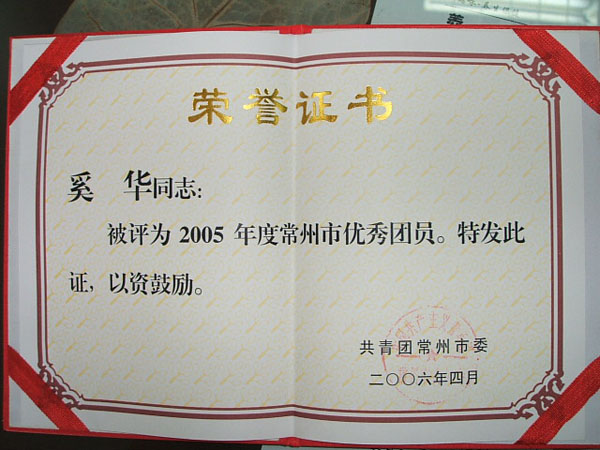 荣誉证书
奚 华同志:
被评为 2005 年度常州市优秀团员。特发此
证,以资鼓励。
共青团常州市委
二〇〇六年四月